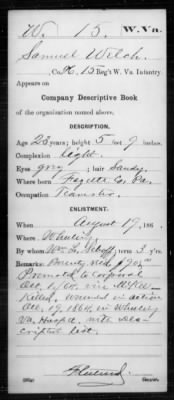 W. 15. W. Va.
Samuel Welch
Co. K, 15 Reg't W. Va. Infantry
Appears on
Company Descriptive Book
of the organization named above.
DESCRIPTION.
Age 23 years; height 5 feet 9 inches.
Complexion Light
Eyes grey; hair Sandy
Where born Fayette Co, Pa.
Occupation Teamster
ENLISTMENT.
When August 19, 186
Where Wheeling
By whom Wm. L. term 3 y'rs.
Remarks: Bounty rec'd
Promoted to Corporal
Oct. 1/64, vice
Killed, wounded in action
Oct. 19, 1864, in
Va. Hospt.
list.
Copyist.